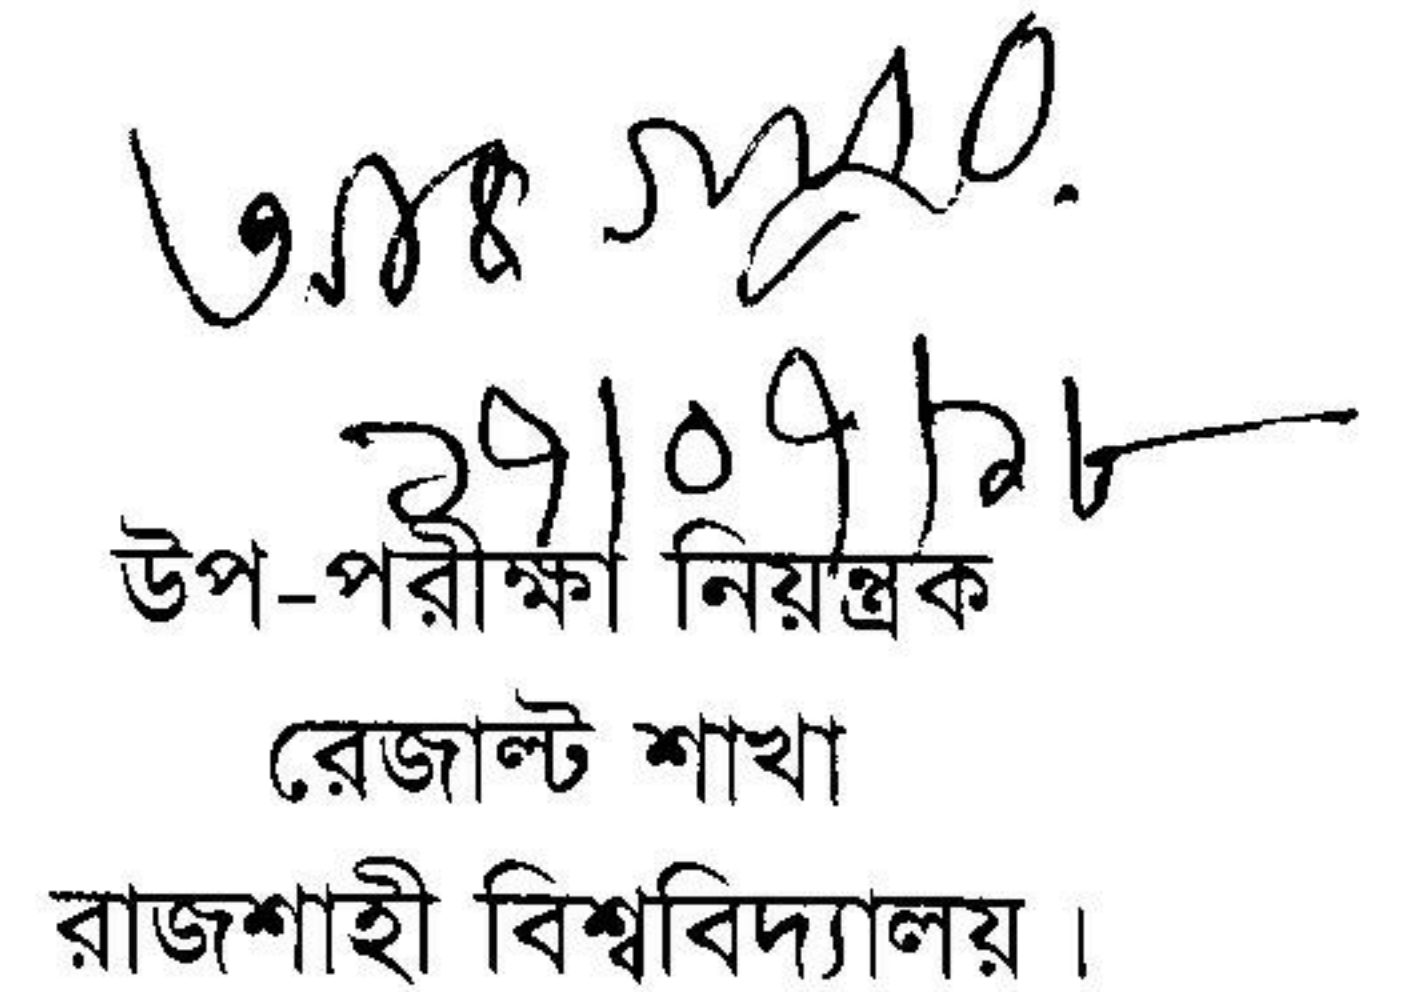 ২৭/০৭/২৮
উপ-পরীক্ষা নিয়ন্ত্রক
রেজাল্ট শাখা
রাজশাহী বিশ্ববিদ্যালয় ।